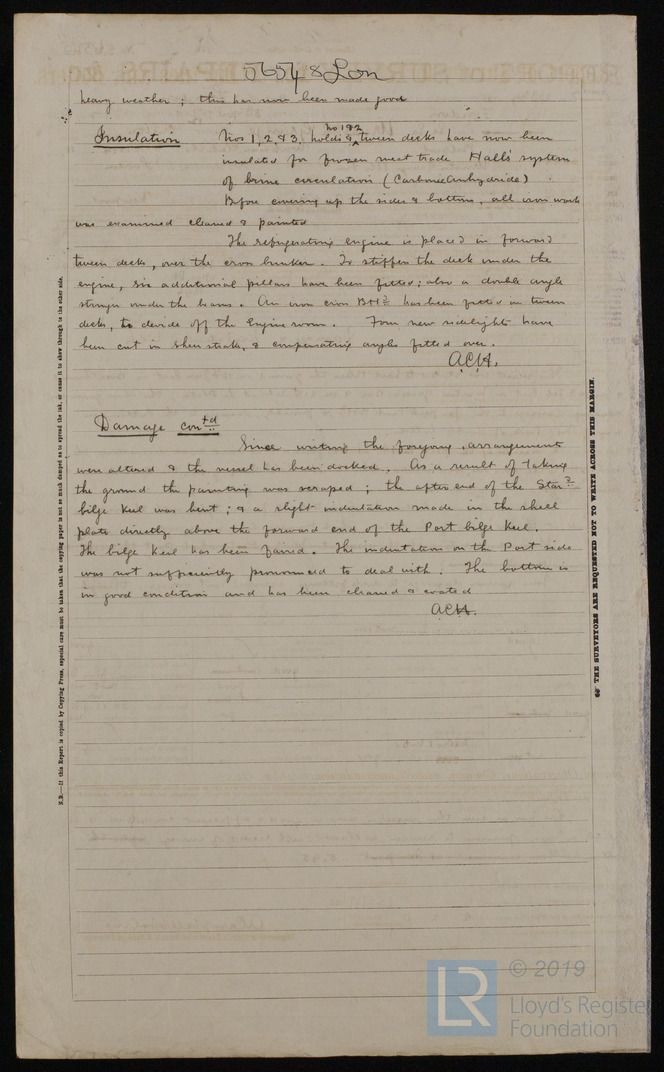 56548 Lon
heavy weather; this has now been made good
Insulation Nos 1, 2, & 3, holds & No 1 & 2 tween decks have now been
insulated for frozen meat trade Hall's system
of brine circulation (Carbonic Anhydride)
Before covering up the sides & bottom, all iron work
was examined cleaned & painted
The refrigerating engine is placed in forward
tween decks, over the cross bunker. To stiffen the deck under the
engine, six additional pillars have been fitted; also a double angle
stringer under the beams. An iron cross BHd has been fitted in tween
decks, to devide off the Engine room. Four new sidelights have
been cut in sheer strake, & compensating angles fitted over.
A.C.H.
Damage contd
Since writing the foregoing, arrangements
were altered & the vessel has been docked. As a result of taking
the ground the painting was scraped; the after end of the Stard
bilge keel was bent; & a slight indentation made in the shell
plate directly above the forward end of the Port bilge keel.
The bilge keel has been faired. The indentation on the Port side
was not sufficiently pronounced to deal with. The bottom is
in good condition and has been cleaned & coated
A.C.H.
N.B.—If this Report is copied by Copying Press, especial care must be taken that the copying paper is not so much damped as to spread the ink, or cause it to show through to the other side.
THE SURVEYORS ARE REQUESTED NOT TO WRITE ACROSS THIS MARGIN.
LR
© 2019
Lloyd's Register
Foundation